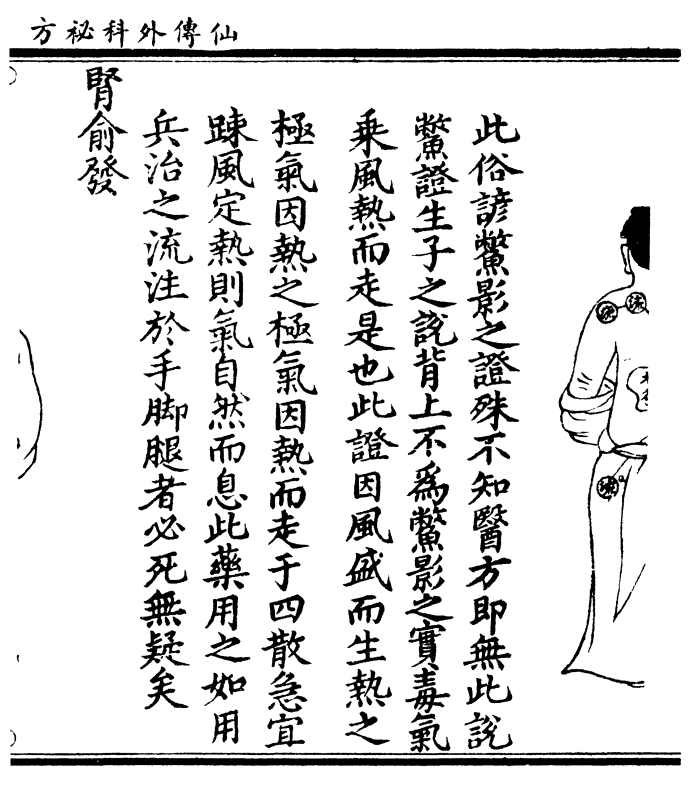 仙傳外科祕方
此俗諺鱉影之證殊不知醫方即無此説
鱉證生子之説背上不為鱉影之實毒氣
乘風熱而走是也此證因風盛而生熱之
極氣因熱之極氣因熱而走于四散急宜
踈風定熱則氣自然而息此藥用之如用
兵治之流注於手脚腿者必死無疑矣
腎俞發